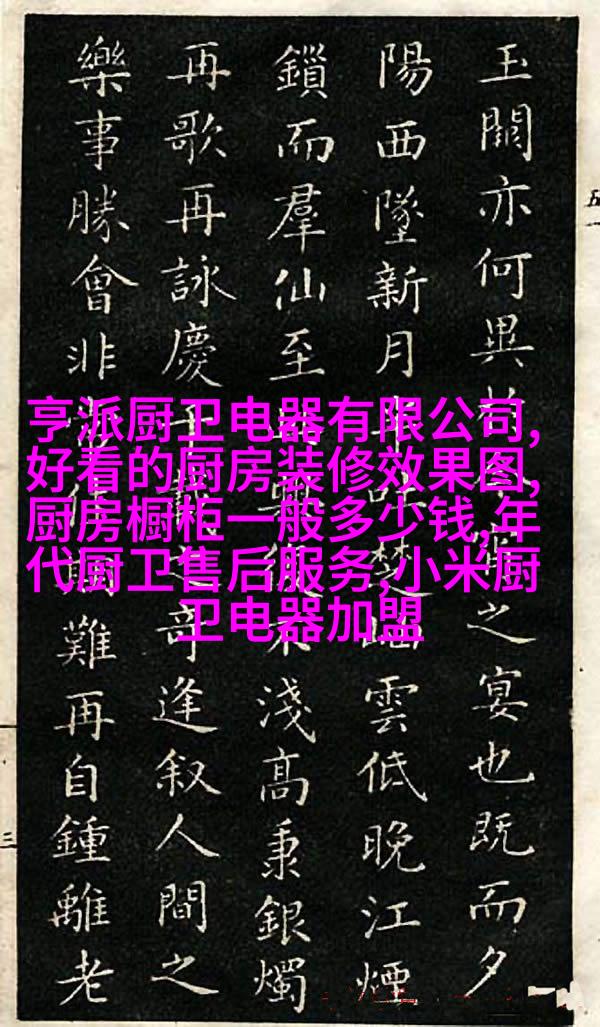 亨派厨卫电器有限公司,
好看的厨房装修效果图,
厨房橱柜一般多少钱,年
代厨卫售后服务,小米厨
卫电器加盟
玉關亦何異於今宵之宴也既而夕
陽西墜新月半吐楚岫雲低晚江煙
鎖而羣仙至興復不淺高秉銀燭
再歌再詠慶千載之奇逢叙人間之
樂事勝會非難再自鍾離老